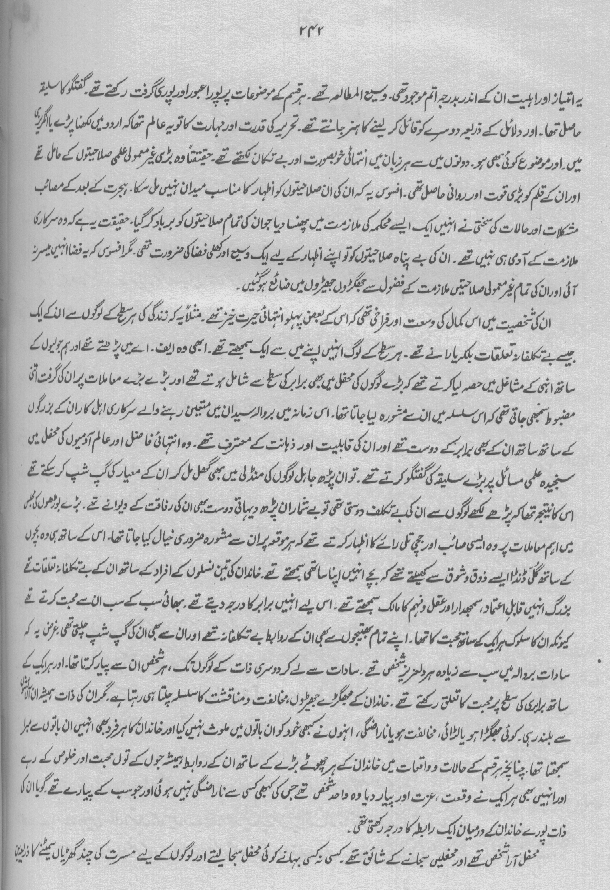 ۲۴۲
یہ امتیاز اور اہلیت ان کے اندر بدرجہ اتم موجود تھی۔ وسیع المطالعہ تھے۔ ہر قسم کے موضوعات پر پورا عبور اور پوری گرفت رکھتے تھے۔ گفتگو کا سلیقہ
حاصل تھا۔ اور دلائل کے ذریعہ دوسرے کو قائل کر لینے کا ہنر جانتے تھے۔ تحریر کی قدرت اور مہارت کا تو یہ عالم تھا کہ اردو میں لکھنا پڑے یا انگریزی
میں، اور موضوع کوئی بھی ہو۔ دونوں میں سے ہر زبان میں انتہائی خوبصورت اور بے تکان لکھتے تھے۔ حقیقتاً وہ بڑی غیر معمولی علمی صلاحیتوں کے حامل تھے
اور ان کے قلم کو بڑی قوت اور روانی حاصل تھی۔ افسوس یہ کہ ان کی ان صلاحیتوں کو اظہار کا مناسب میدان نہیں مل سکا۔ ہجرت کے بعد کے مصائب
مشکلات اور حالات کی سختی نے انہیں ایک ایسے محکمہ کی ملازمت میں پھنسا دیا جو ان کی تمام صلاحیتوں کو برباد کر گیا۔ حقیقت یہ ہے کہ وہ سرکاری
ملازمت کے آدمی ہی نہیں تھے۔ ان کی بے پناہ صلاحیتوں کو تو اپنے اظہار کے لیے ایک وسیع اور کھلی فضا کی ضرورت تھی۔ مگر افسوس کہ یہ فضا انہیں میسر نہ
آئی اور ان کی تمام غیر معمولی صلاحیتیں ملازمت کے فضول سے جھگڑوں جھیڑوں میں ضائع ہو گئیں۔
ان کی شخصیت میں اس کمال کی وسعت اور فراخی تھی کہ اس کے بعض پہلو انتہائی حیرت خیز تھے۔ مثلاً یہ کہ زندگی کی ہر سطح کے لوگوں سے ان کے ایک
جیسے بے تکلفانہ تعلقات بلکہ یارانے تھے۔ ہر سطح کے لوگ انہیں اپنے میں سے ایک سمجھتے تھے۔ ابھی وہ ایف۔ اے میں پڑھتے تھے اور ہم جولیوں کے
ساتھ انہی کے مشاغل میں حصہ لیا کرتے تھے کہ بڑے لوگوں کی محفل میں بھی برابر کی سطح سے شامل ہوتے تھے اور بڑے بڑے معاملات پر ان کی گرفت اتنی
مضبوط سمجھی جاتی تھی کہ اس سلسلہ میں ان سے مشورہ لیا جاتا تھا۔ اس زمانہ میں بروالہ سیدان میں متعین رہنے والے سرکاری اہل کار ان کے بزرگوں
کے ساتھ ساتھ ان کے بھی برابر کے دوست تھے اور ان کی قابلیت اور ذہانت کے معترف تھے۔ وہ انتہائی فاضل اور عالم آدمیوں کی محفل میں
سنجیدہ علمی مسائل پر بڑے سلیقہ کی گفتگو کرتے تھے۔ تو ان پڑھ جاہل لوگوں کی منڈلی میں بھی گھل مل کر ان کے معیار کی گپ شپ کر سکتے تھے
اس کا نتیجہ تھا کہ پڑھے لکھے لوگوں سے ان کی بے تکلف دوستی تھی تو بے شمار ان پڑھ دیہاتی دوست بھی ان کی رفاقت کے دیوانے تھے۔ بڑے بوڑھوں کی محفل
میں اہم معاملات پر وہ ایسی صائب اور جچی تلی رائے کا اظہار کرتے تھے کہ ہر موقعہ پر ان سے مشورہ ضروری خیال کیا جاتا تھا۔ اس کے ساتھ ہی وہ بچوں
کے ساتھ گلی ڈنڈا ایسے ذوق و شوق سے کھیلتے تھے کہ بچے انہیں اپنا ساتھی سمجھتے تھے۔ خاندان کی تین نسلوں کے افراد کے ساتھ ان کے بے تکلفانہ تعلقات تھے
بزرگ انہیں قابل اعتماد، سمجھدار اور عقل و فہم کا مالک سمجھتے تھے۔ اس لیے انہیں برابر کا درجہ دیتے تھے۔ بھائی سب کے سب ان سے محبت کرتے تھے
کیونکہ ان کا سلوک ہر ایک کے ساتھ محبت کا تھا۔ اپنے تمام بھتیجوں سے بھی ان کے روابط بے تکلفانہ تھے اور ان سے بھی ان کی گپ شپ چلتی تھی۔ غرض یہ کہ
سادات بروالہ میں سب سے زیادہ ہر دلعزیز شخص تھے۔ سادات سے لے کر دوسری ذات کے لوگوں تک، ہر شخص ان سے پیار کرتا تھا۔ اور ہر ایک کے
ساتھ برابری کی سطح پر محبت کا تعلق رکھتے تھے۔ خاندان کے جھگڑے جھیڑوں، مخالفت و مناقشت کا سلسلہ چلتا ہی رہتا ہے۔ مگر ان کی ذات ہمیشہ ان
سے بلند رہی۔ کوئی جھگڑا ہو یا لڑائی، مخالفت ہو یا ناراضگی، انہوں نے کبھی خود کو ان باتوں میں ملوث نہیں کیا اور خاندان کا ہر فرد بھی انہیں ان باتوں سے مبرا
سمجھتا تھا۔ چنانچہ ہر قسم کے حالات و واقعات میں خاندان کے ہر چھوٹے بڑے کے ساتھ ان کے روابط ہمیشہ جوں کے توں محبت اور خلوص کے رہے
اور انہیں بھی ہر ایک نے وقعت، عزت اور پیار دیا وہ واحد شخص تھے جن کی کبھی کسی سے ناراضگی نہیں ہوئی اور جو سب کے پیارے تھے۔ گویا ان کی
ذات پورے خاندان کے درمیان ایک رابطہ کا درجہ رکھتی تھی۔
محفل آرا شخص تھے اور محفلیں سجانے کے شائق تھے۔ کسی نہ کسی بہانے کوئی محفل سجا لیتے اور لوگوں کے لیے مسرت کی چند گھڑیاں سمیٹنے کا ذریعہ